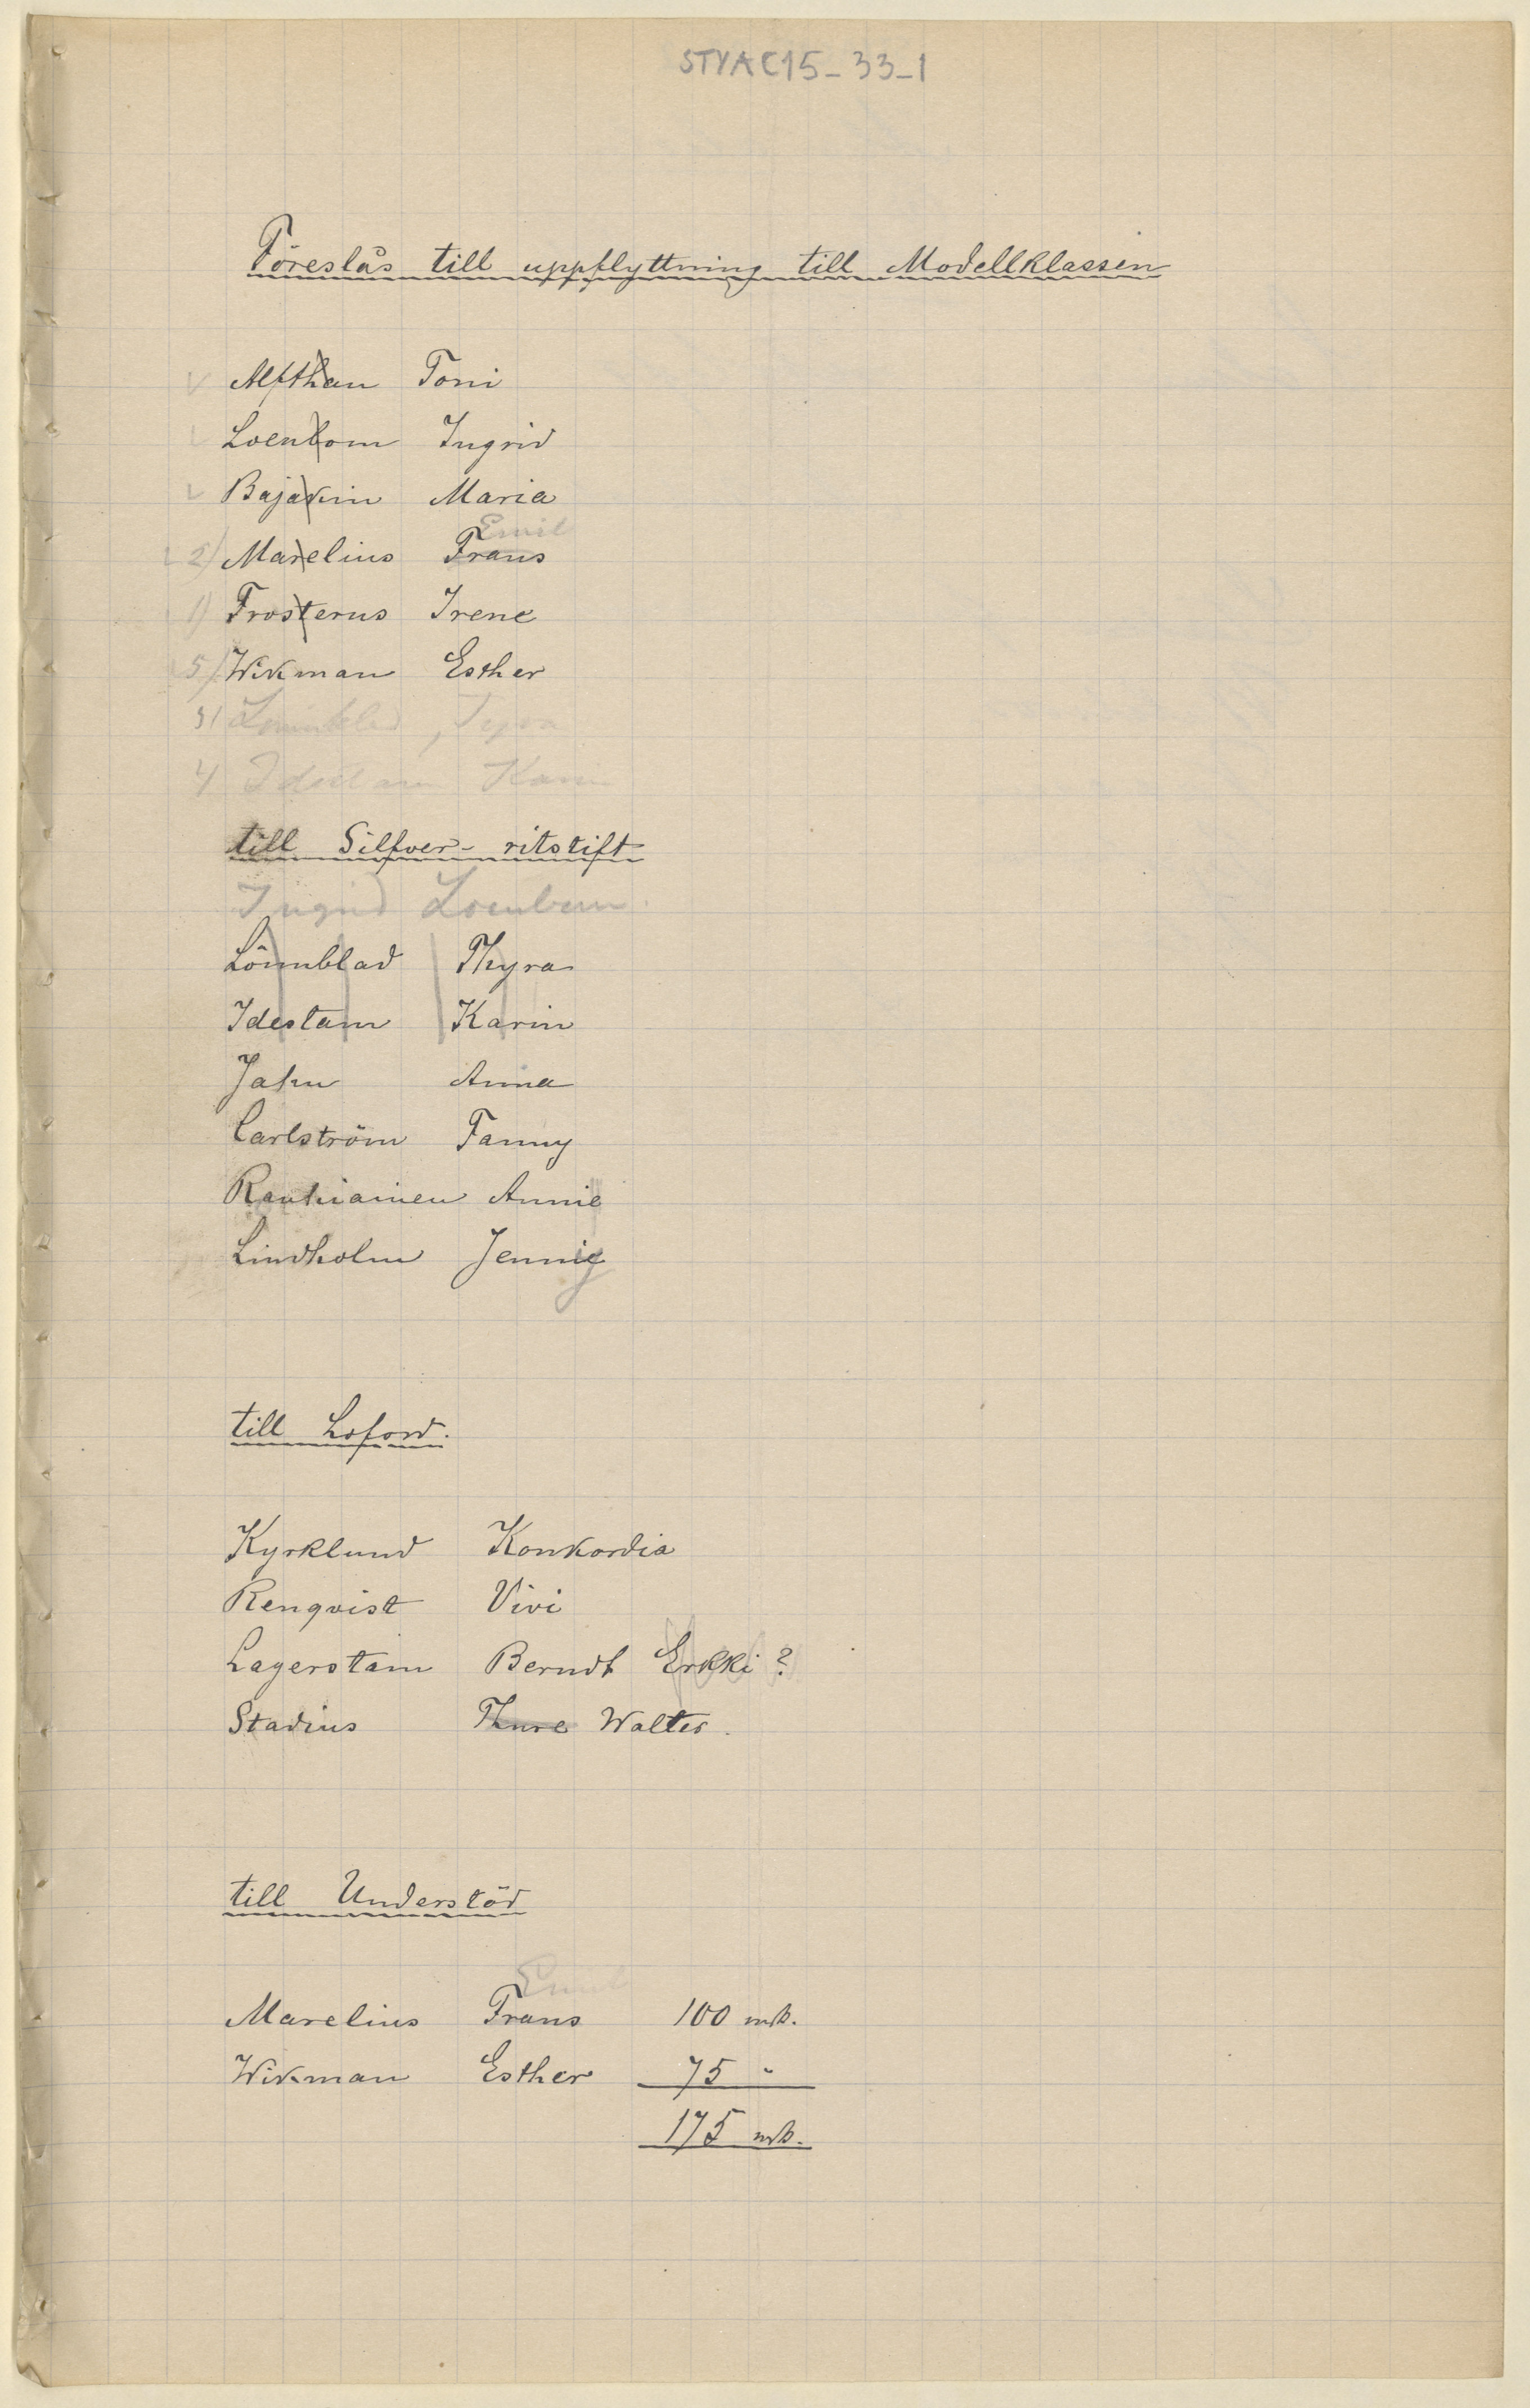 STYAC15_33_1
Föreslås till uppflyttning till Modellklassen
Alfthan Toni
Loenbom Ingrid
Bajakin Maria
Emil
2) Marelius Frans
1) Frosterus Irene
5) Wikman Esther
3) Lönnblad, Tyra
4) Idestam Karin
till Silfver-ritstift
Ingrid Loenbom.
Lönnblad Thyra
Idestam Karin
Jahn Anna
Carlström Fanny
Rautiainen Annie
Lindholm Jenny
till Loford.
Kyrklund Konkordia
Renqvist Vivi
Lagerstam Berndt Erkki ?
Stadius Thure Walter.
till Understöd
Emil
Marelius Frans 100 mk.
Wikman Esther 75 "
175 mk.